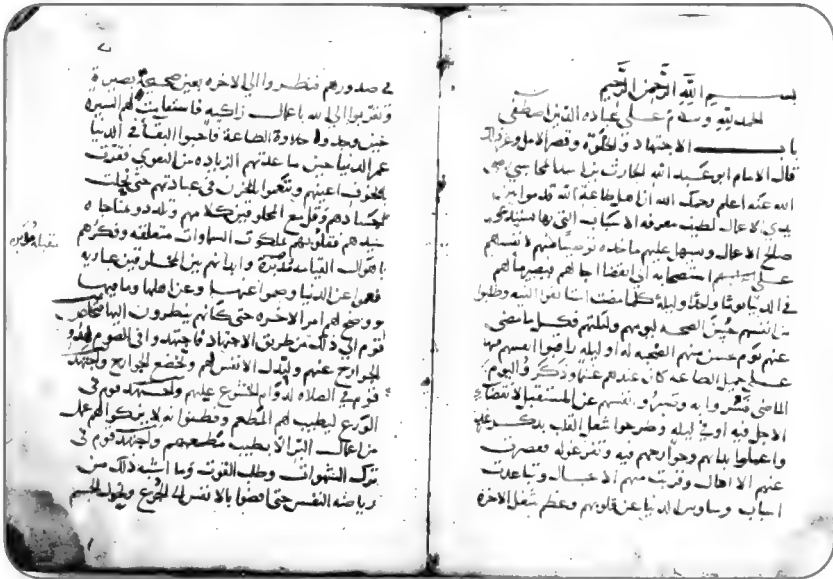 بسم الله الرحمن الرحيم
الحمد لله وسلام على عباده الذين اصطفى
باب الاجتهاد في الخلوة وقصر الامل
قال الامام ابو عبد الله الحارث بن اسد المحاسبي رضي
الله عنه اعلم رحمك الله ان اهل طاعة الله قدموا بين
يدي الاعمال لطيف معرفة الاسباب التي بها
صالح الاعمال وسهل عليهم ماخذه منهم لانفسهم
على استصحابه الى انقضا اجالهم فصيروا لهم
في الدنيا يوما واحدا وليلة كلما مضت استانفوا النية وطلبوا
من انفسهم حسن الصحبة ليومهم وليلتهم فكل ما مضى
عنهم يوم حسن منهم الصحبة له او ليلة راقبوا انفسهم فيها
على جميل الطاعة كان عندهم غنما وذكروا اليوم
الماضي فسروا به وصبروا انفسهم عن المستقبل لانقضاء
الاجل فيه او في ليله وطرحوا شغل القلب بذكر غد
واعملوا ابدانهم وجوارحهم فيه وتفرغوا له فقصرت
عنهم الامال وقربت منهم الاجال وتباعدت
اسباب وساوس الدنيا عن قلوبهم وعظم شغل الاخرة
في صدورهم فنظروا الى الاخرة بعين صحيحة بصيرة
وتقربوا الى الله باعمال زاكية فاستقامت لهم السيرة
حين وجدوا حلاوة الطاعة فاحبوا البقا في الدنيا
عمر الدنيا حين ما عدتهم الزيادة من التقوى فقرت
بالخوف اعينهم وتنعموا بالحزن في عبادتهم حتى نحلت
اجسادهم وقل مع المخلوقين كلامهم وتلذذوا بمناجاة
سيدهم فقلوبهم بملكوت السماوات متعلقة وفكرهم
باهوال القيامة وابدانهم بين المخلوقين عارية
فعموا عن الدنيا وصموا عنها وعن اهلها وما فيها
ووضح لهم امر الاخرة حتى كانهم ينظرون اليها
قوم الى ذلك من طريق الاجتهاد فاجتهدوا في الصوم
الجوارح عنهم ولتذل الانفس لهم ولتخضع الجوارح واجتهد
قوم في الصلاة لدوام الخشوع عليهم واجتهد قوم في
الورع ليطيب لهم المطعم وفطنوا انه لا يزكوا لهم عمل
من اعمال البر الا بطيب مطعمهم واجتهد قوم في
ترك الشهوات وطلب القوت وما اشبه ذلك من
رياضة النفس حتى افضوا بالانفس الى الجوع ونحول الجسم